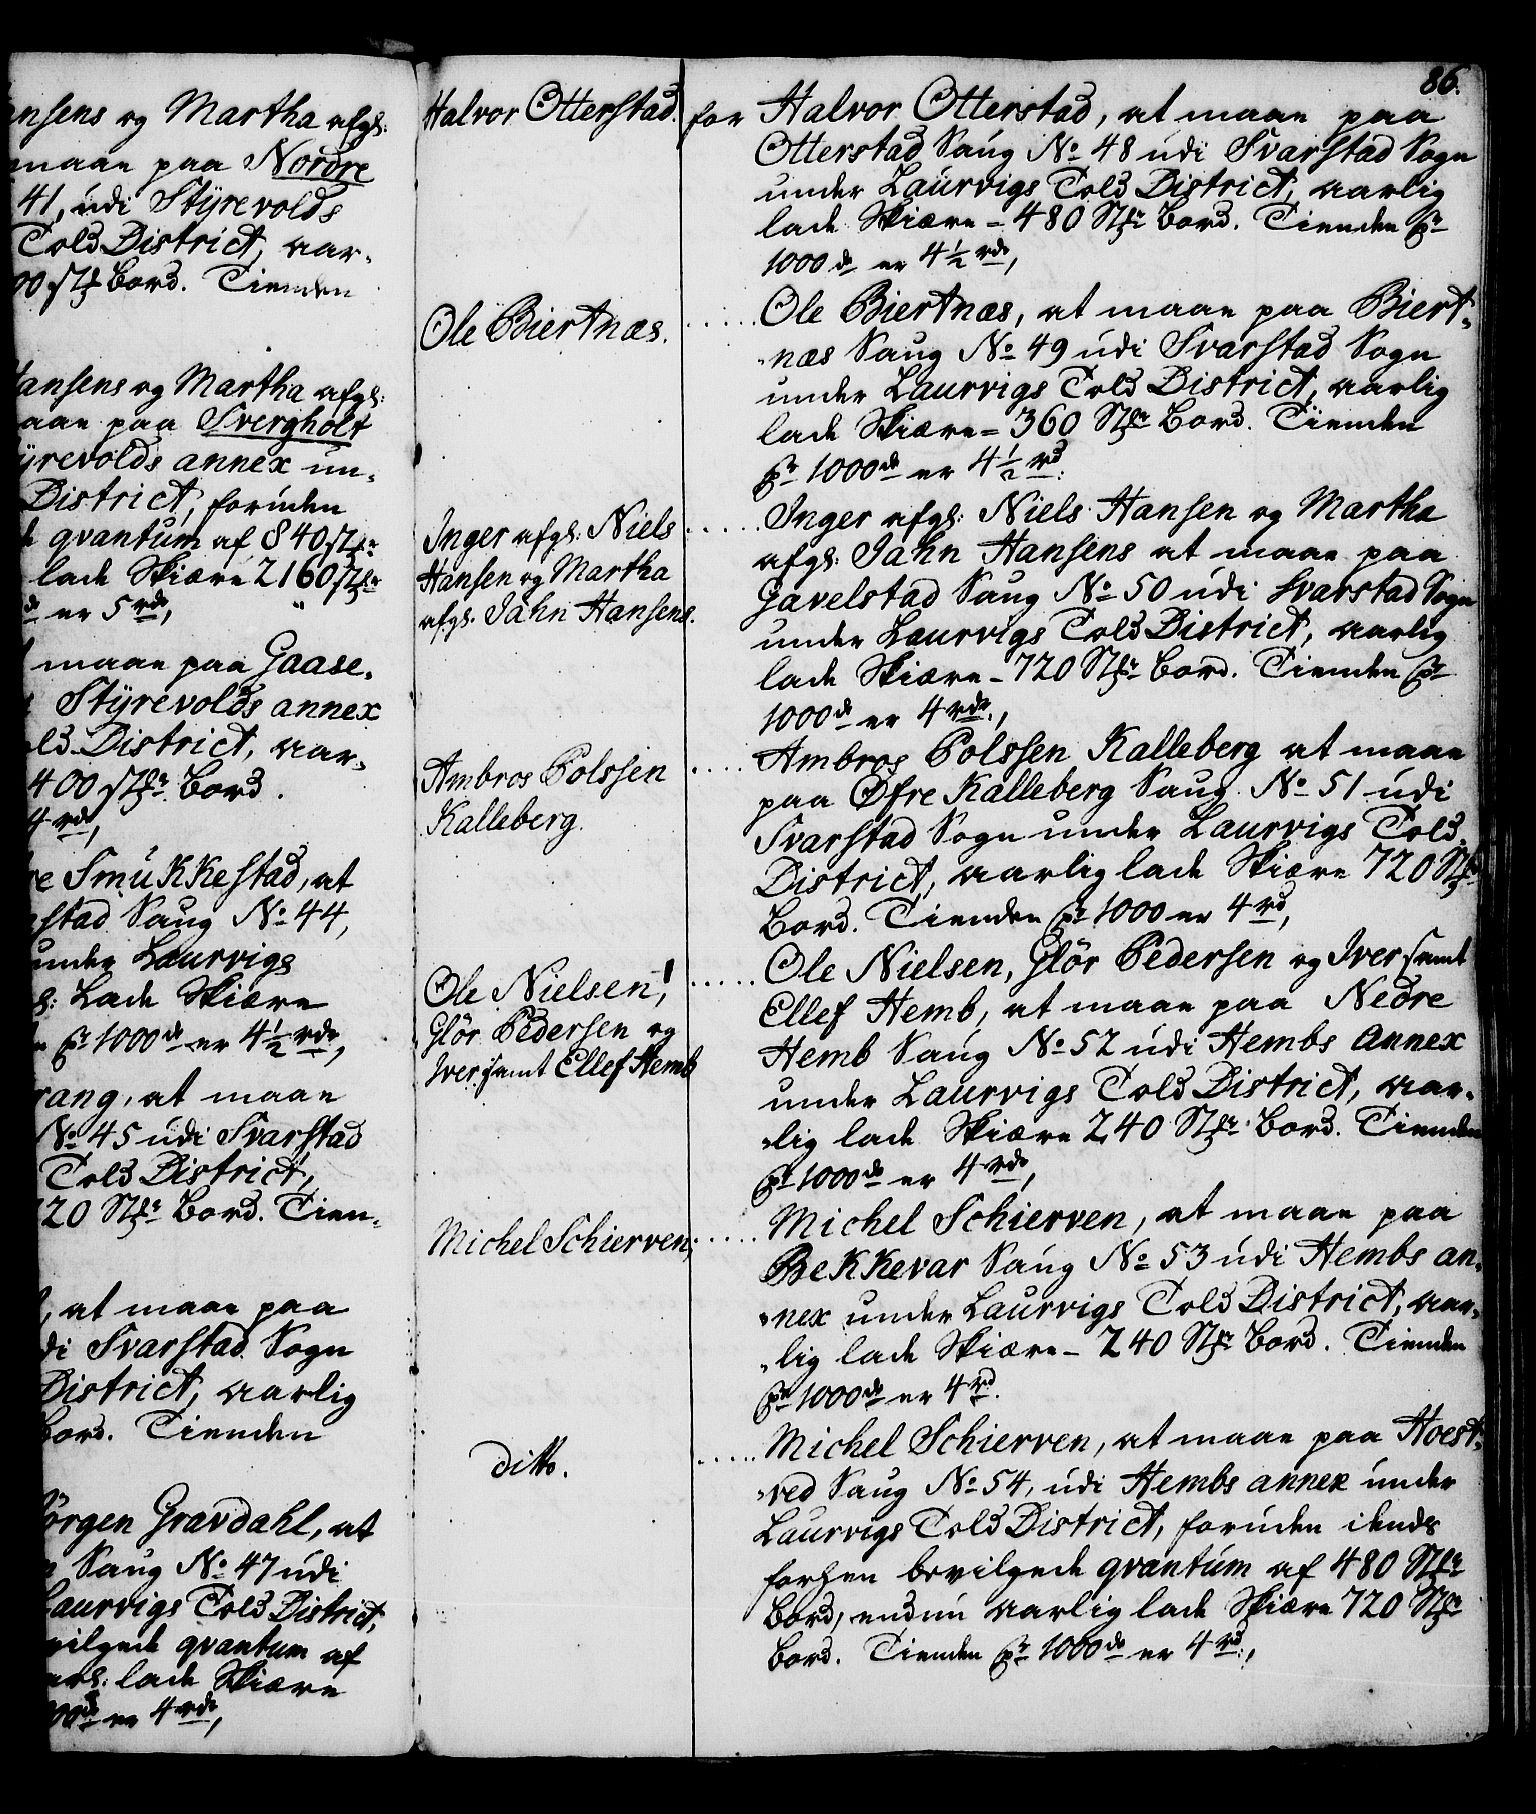 ansens og Martha afgl:
maae paa Nordre
41, udi Styrevolds
Told District, aar-
00 Stkr Bord. Tienden
Hansens og Martha afgl:
aae paa Svergholt
yrevolds annex un-
District, foruden
qvantum af 840 Stkr
lade Skiære 2160 Stkr
er 5 rdr,
maae paa Gaase-
Styrevolds annex
old District, aar-
400 Stkr. Bord.
4 rd,
re Smukkestad, at
stad Saug No. 44,
under Laurvigs
lade Skiære
pr 1000de er 4 1/2 rdr,
rang, at maae
No. 45 udi Svarstad
Told District,
720 Stkr Bord. Tien-
, at maae paa
di Svarstad Sogn
District, aarlig
Bord. Tienden
Jörgen Gravdahl, at
Saug No. 47 udi
Laurvigs Told District,
vilgede qvantum af
lade Skiære
000de er 4 rdr,
86.
Halvor Otterstad.
for Halvor Otterstad, at maae paa
Otterstad Saug No. 48 udi Svarstad Sogn
under Laurvigs Told District, aarlig
lade Skiære - 480 Stkr Bord. Tienden pr
1000de er 4 1/2 rdr,
Ole Biertnæs.
Ole Biertnæs, at maae paa Biert-
næs Saug No. 49 udi Svarstad Sogn
under Laurvigs Told District, aarlig
lade Skiære - 360 Stkr Bord. Tienden
pr 1000de er 4 1/2 rd.
Inger afgl: Niels
Hansen og Martha
afgl. Jahn Hansens.
Inger afgl: Niels Hansen og Martha
afgl: Jahn Hansens at maae paa
Gavelstad Saug No. 50 udi Svarstad Sogn
under Laurvigs Told District, aarlig
lade Skiære - 720 Stkr Bord. Tienden pr
1000de er 4 rdr.,
Ambros Polssen
Kalleberg.
Ambros Polssen Kalleberg at maae
paa Øfre Kalleberg Saug No. 51 udi
Svarstad Sogn under Laurvigs Told
District, aarlig lade Skiære 720 Stkr
Bord. Tienden pr 1000 er 4 rd,
Ole Nielsen,
Glör Pedersen og
Iver samt Ellef Hemb
Ole Nielsen, Glör Pedersen og Iver samt
Ellef Hemb, at maae paa Nedre
Hemb Saug No. 52 udi Hembs Annex
under Laurvigs Told District, aar-
lig lade Skiære 240 Stkr. Bord. Tienden
pr 1000de er 4 rdr,
Michel Schierven,
Michel Schierven, at maae paa
Bekkevar Saug No. 53 udi Hembs an-
nex under Laurvigs Told District, aar-
lig lade Skiære - 240 Stkr Bord. Tienden
pr 1000de er 4 rd.
ditto.
Michel Schierven, at maae paa Hoest-
ved Saug No. 54, udi Hembs annex under
Laurvigs Told District, foruden dends
forhen bevilgede qvantum af 480 Stkr
Bord, endnu aarlig lade Skiære 720 Stkr
Bord. Tienden pr 1000de er 4 rd.,